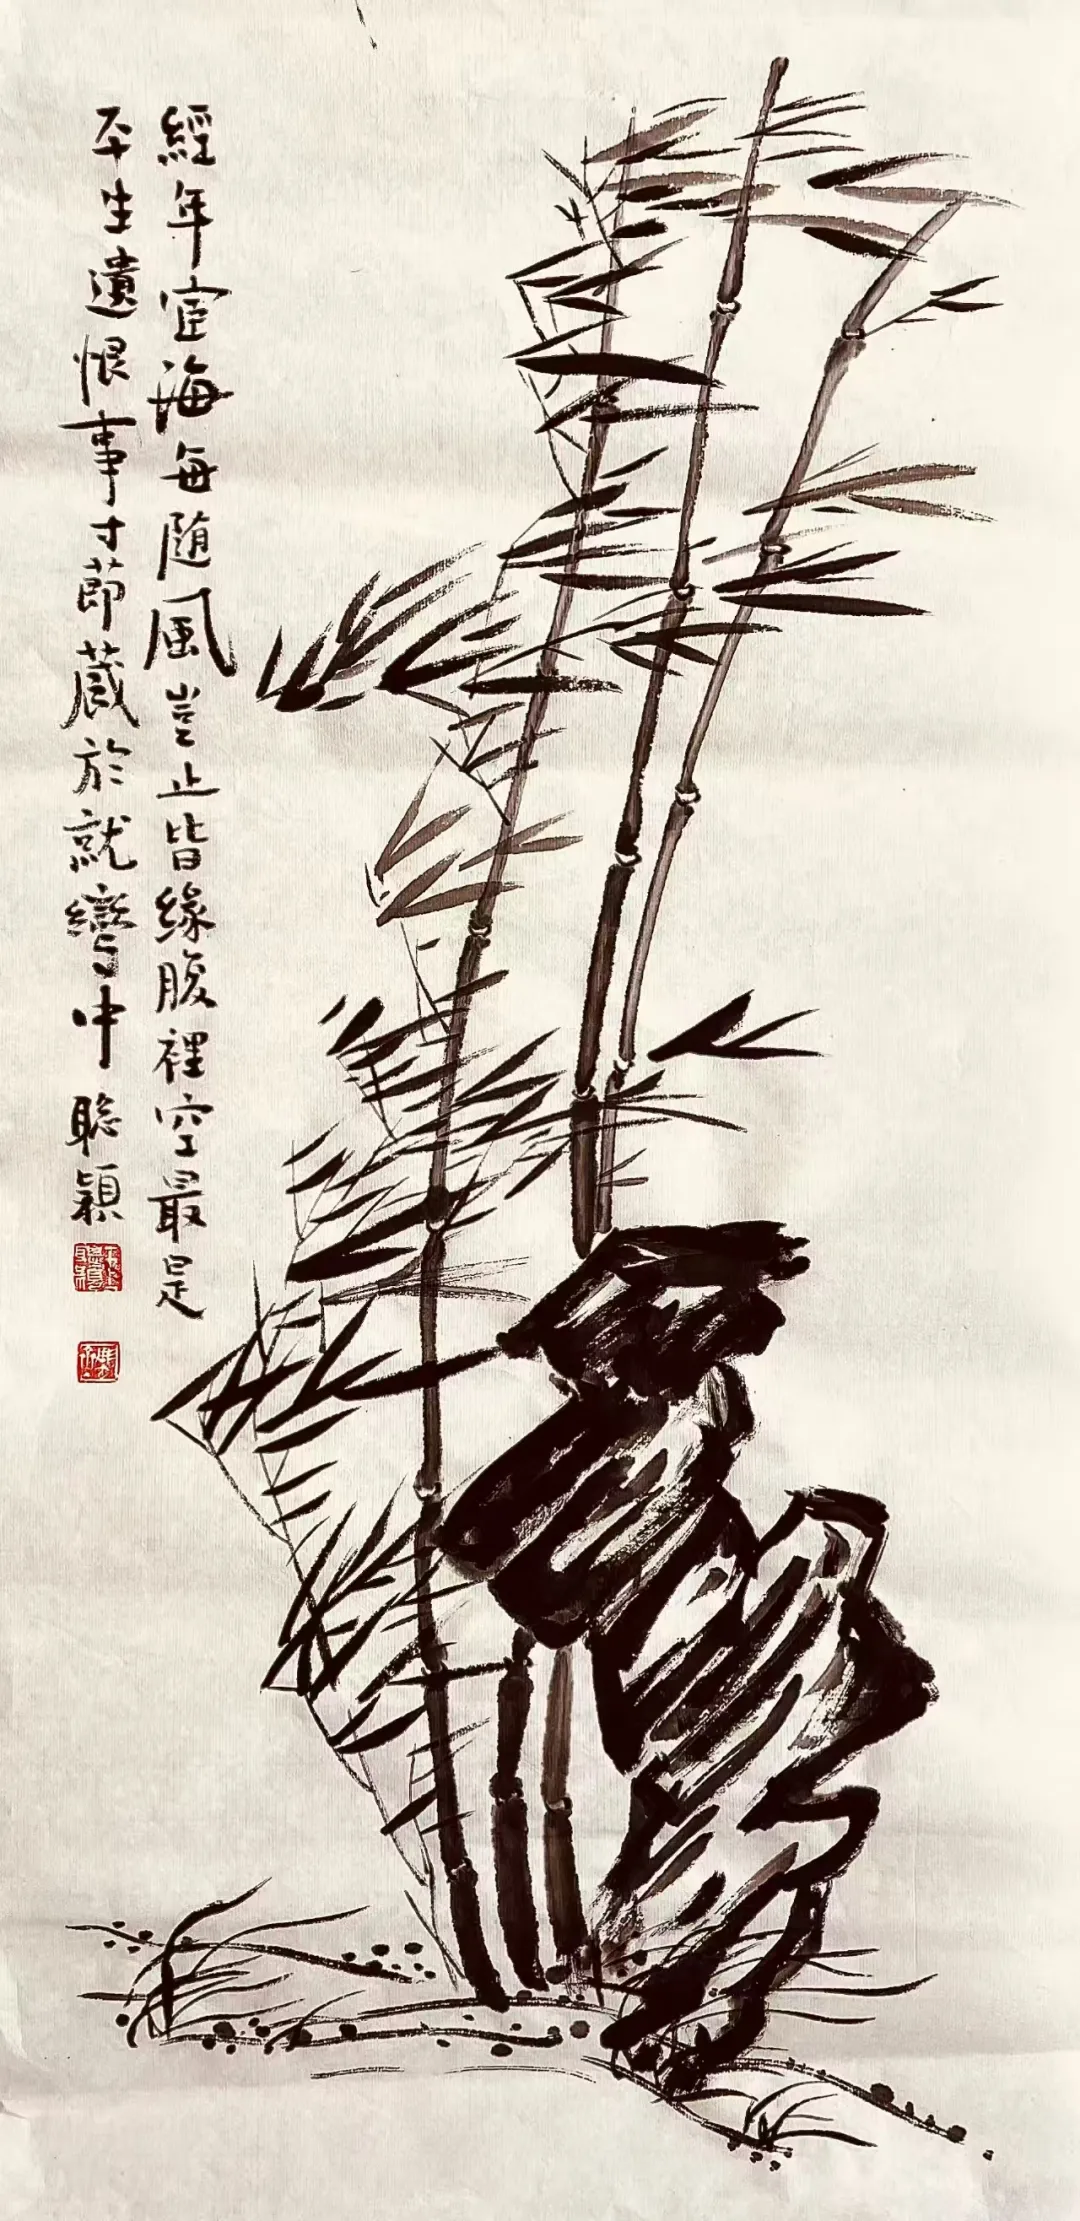 經年宦海每随風豈止皆緣腹裡空最是
平生遺恨事寸節蔵於就彎中
聪穎